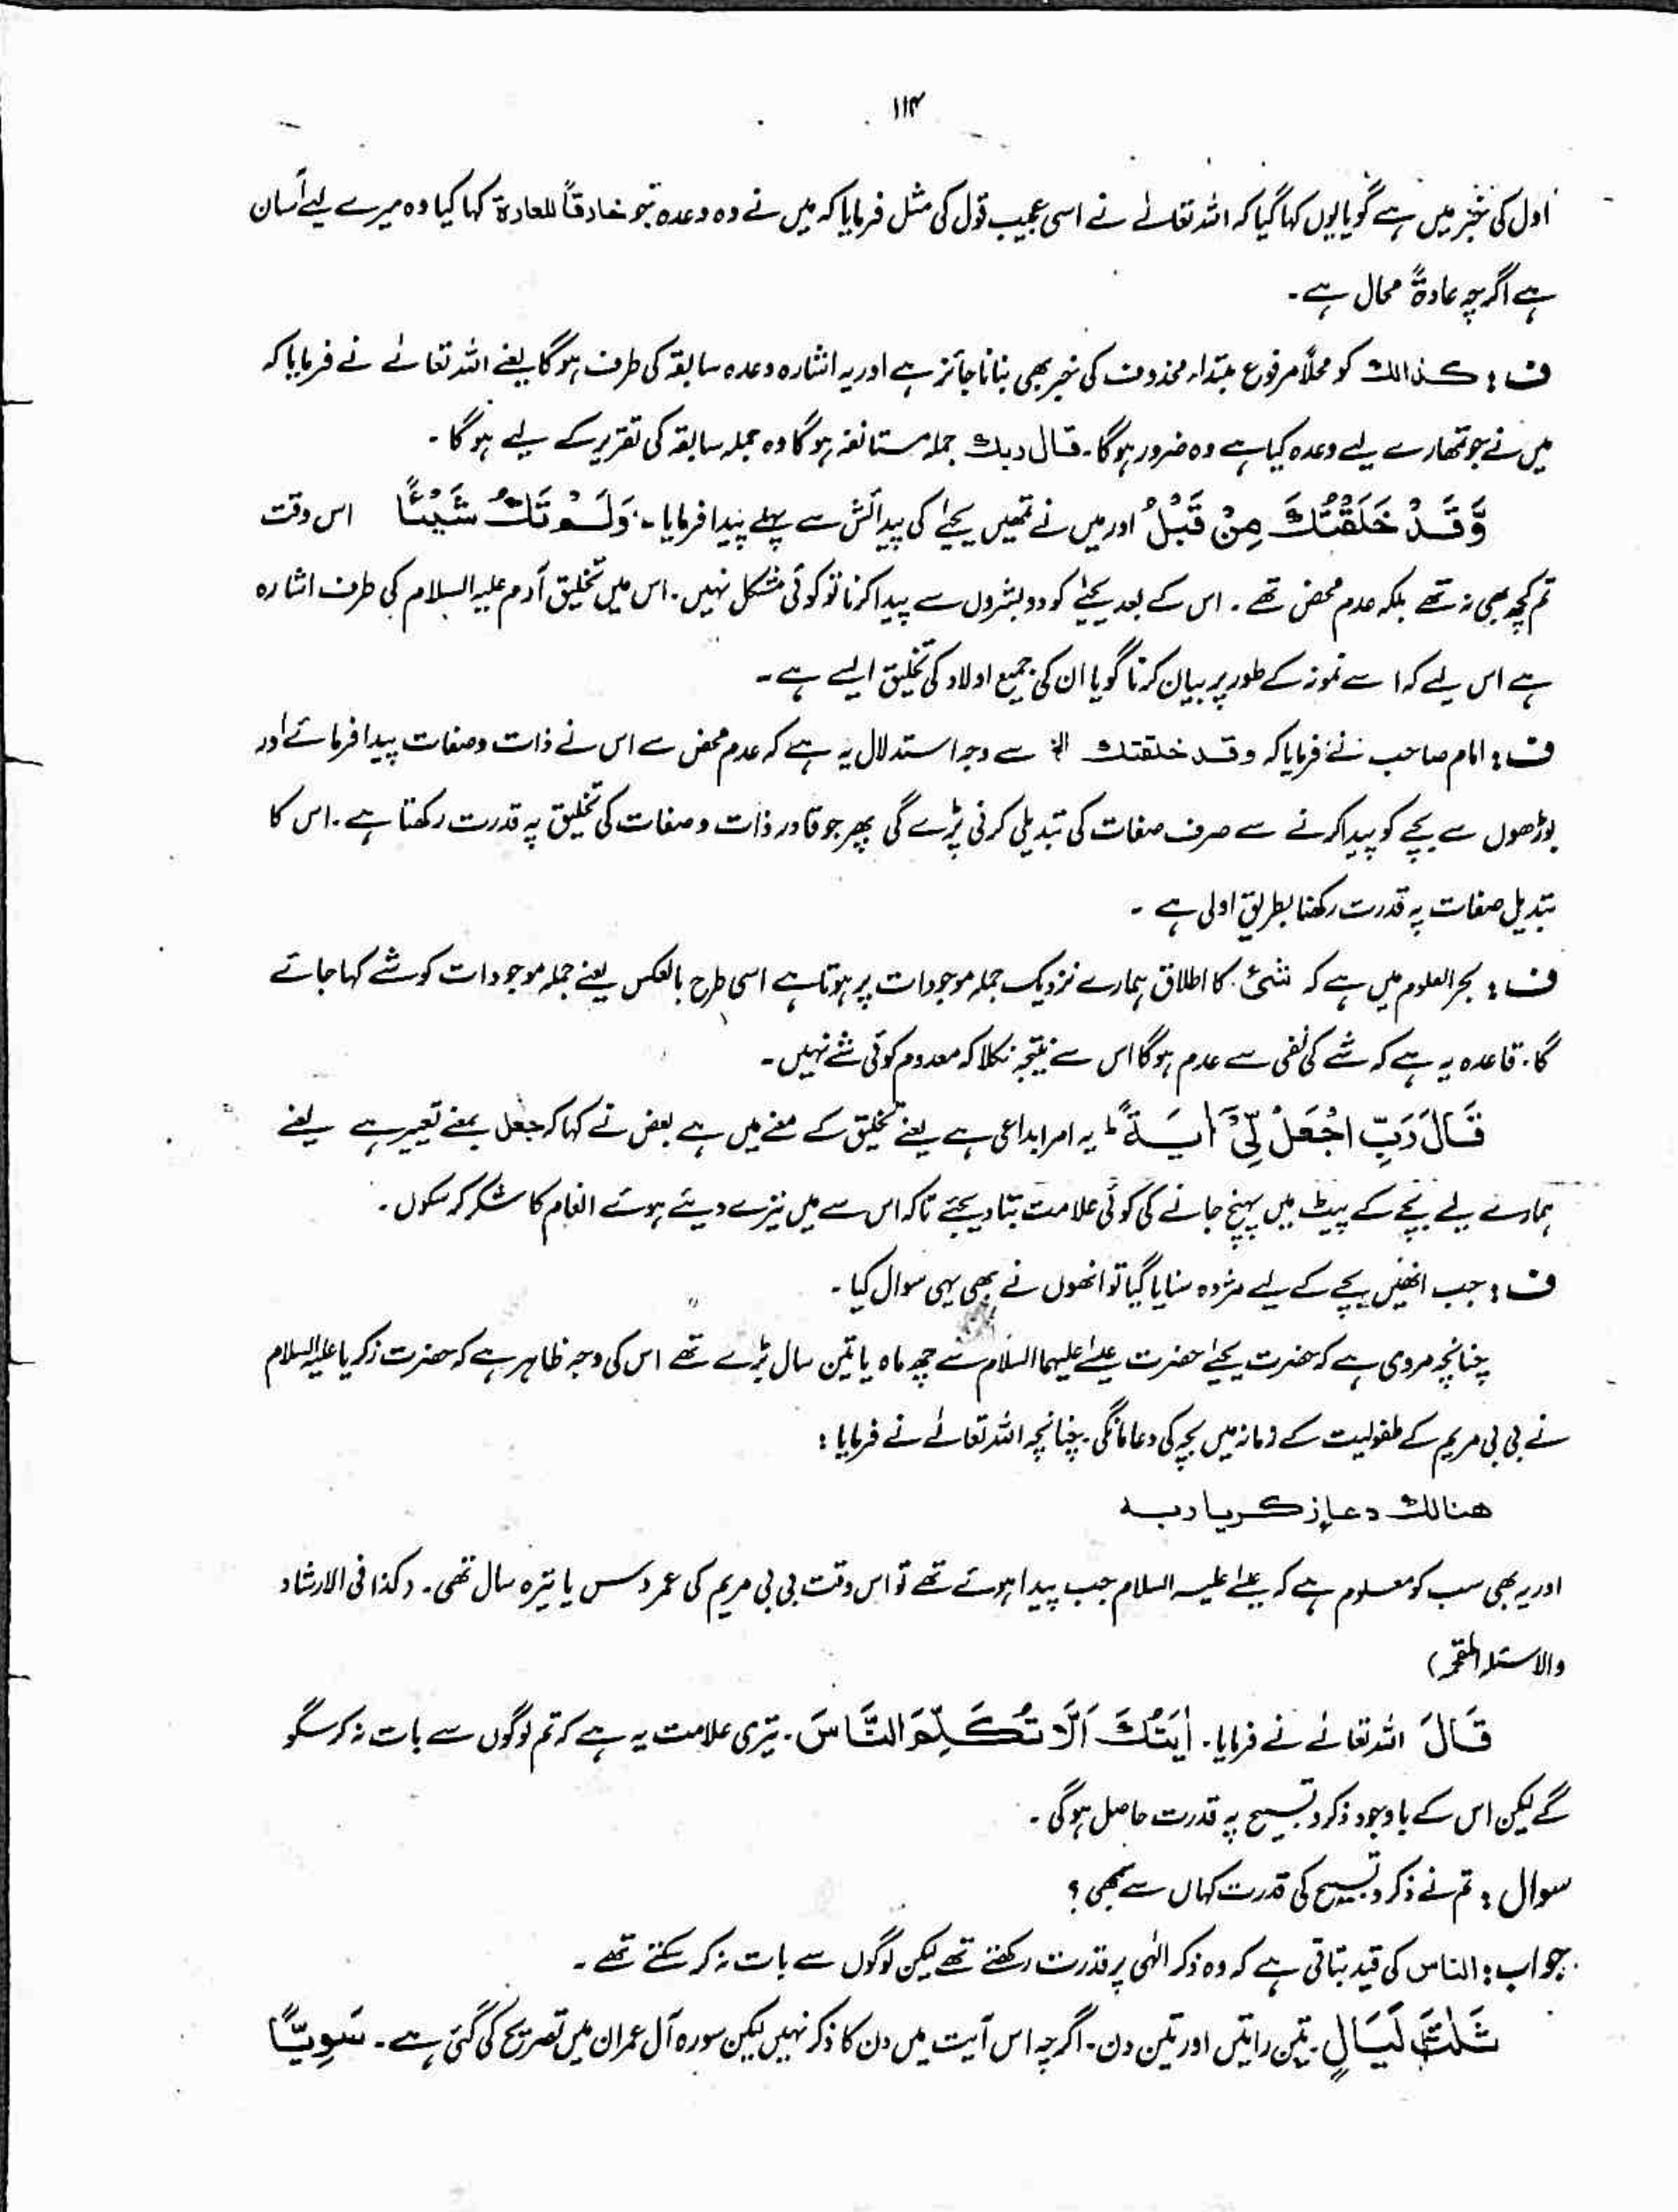 ۱۱۴
اول کی خبر میں ہے گویا یوں کہا گیا کہ اللہ تعالےٰ نے اسی عجیب قول کی مثل فرمایا کہ میں نے وہ وعدہ جو خارقاً للعادۃ کہا گیا وہ میرے لیے آسان
ہے اگرچہ عادۃً محال ہے۔
ف: کذالک کو محلاً مرفوع مبتداء محذوف کی خبر بھی بنانا جائز ہے اور یہ اشارہ وعدہ سابقہ کی طرف ہو گا یعنے اللہ تعالےٰ نے فرمایا کہ
میں نے جو تمھارے لیے وعدہ کیا ہے وہ ضرور ہو گا۔ قال ربک جملہ مستانفہ ہو گا وہ جملہ سابقہ کی تقریر کے لیے ہو گا۔
وَّقَدْ خَلَقْتُكَ مِنْ قَبْلُ اور میں نے تمھیں یحیےٰ کی پیدائش سے پہلے پیدا فرمایا۔ وَلَمْ تَكُ شَيْئًا اس وقت
تم کچھ بھی نہ تھے بلکہ عدم محض تھے۔ اس کے بعد یحیےٰ کو دو بشروں سے پیدا کرنا تو کوئی مشکل نہیں۔ اس میں تخلیق آدم علیہ السلام کی طرف اشارہ
ہے اس لیے کہ اسے نمونہ کے طور پر بیان کرنا گویا ان کی جمیع اولاد کی تخلیق ایسے ہے۔
ف: امام صاحب نے فرمایا کہ وقد خلقتک الخ سے وجہ استدلال یہ ہے کہ عدم محض سے اس نے ذات و صفات پیدا فرمائے اور
بوڑھوں سے بچے کو پیدا کرنے سے صرف صفات کی تبدیلی کرنی پڑے گی پھر جو قادر ذات و صفات کی تخلیق پہ قدرت رکھتا ہے۔ اس کا
تبدیل صفات پہ قدرت رکھنا بطریق اولی ہے۔
ف: بحر العلوم میں ہے کہ شئ کا اطلاق ہمارے نزدیک جملہ موجودات پر ہوتا ہے اسی طرح بالعکس یعنے جملہ موجودات کو شے کہا جائے
گا۔ قاعدہ یہ ہے کہ شے کی نفی سے عدم ہو گا اس سے نتیجہ نکلا کہ معدوم کوئی شے نہیں۔
قَالَ رَبِّ اجْعَلْ لِّيْٓ اٰيَةً ط یہ امر ابداعی ہے یعنے تخلیق کے معنے میں ہے بعض نے کہا کہ جعل بمعنے تعییر ہے یعنے
ہمارے لیے بچے کے پیٹ میں پہنچ جانے کی کوئی علامت بتا دیجئے تاکہ اس سے میں تیرے دیئے ہوئے انعام کا شکر کر سکوں۔
ف: جب انھیں بچے کے لیے مژدہ سنایا گیا تو انھوں نے بھی یہی سوال کیا۔
چنانچہ مروی ہے کہ حضرت یحیےٰ حضرت عیسےٰ علیہما السلام سے چھ ماہ یا تین سال بڑے تھے اس کی وجہ ظاہر ہے کہ حضرت زکریا علیہ السلام
نے بی بی مریم کے طفولیت کے زمانہ میں بچہ کی دعا مانگی۔ چنانچہ اللہ تعالےٰ نے فرمایا:
ھنالک دعا زکریا ربہ
اور یہ بھی سب کو معلوم ہے کہ عیسےٰ علیہ السلام جب پیدا ہوئے تھے تو اس وقت بی بی مریم کی عمر دس یا تیرہ سال تھی۔ (کذا فی الارشاد
والاسئلۃ المقحمۃ)
قَالَ اللہ تعالےٰ نے فرمایا۔ اٰيَتُكَ اَلَّا تُكَلِّمَ النَّاسَ۔ تیری علامت یہ ہے کہ تم لوگوں سے بات نہ کر سکو
گے لیکن اس کے باوجود ذکر و تسبیح پہ قدرت حاصل ہو گی۔
سوال: تم نے ذکر و تسبیح کی قدرت کہاں سے سمجھی؟
جواب: الناس کی قید بتاتی ہے کہ وہ ذکر الٰہی پر قدرت رکھتے تھے لیکن لوگوں سے بات نہ کر سکتے تھے۔
ثَلٰثَ لَيَالٍ۔ تین راتیں اور تین دن۔ اگرچہ اس آیت میں دن کا ذکر نہیں لیکن سورہ آل عمران میں تصریح کی گئی ہے۔ سَوِيًّا